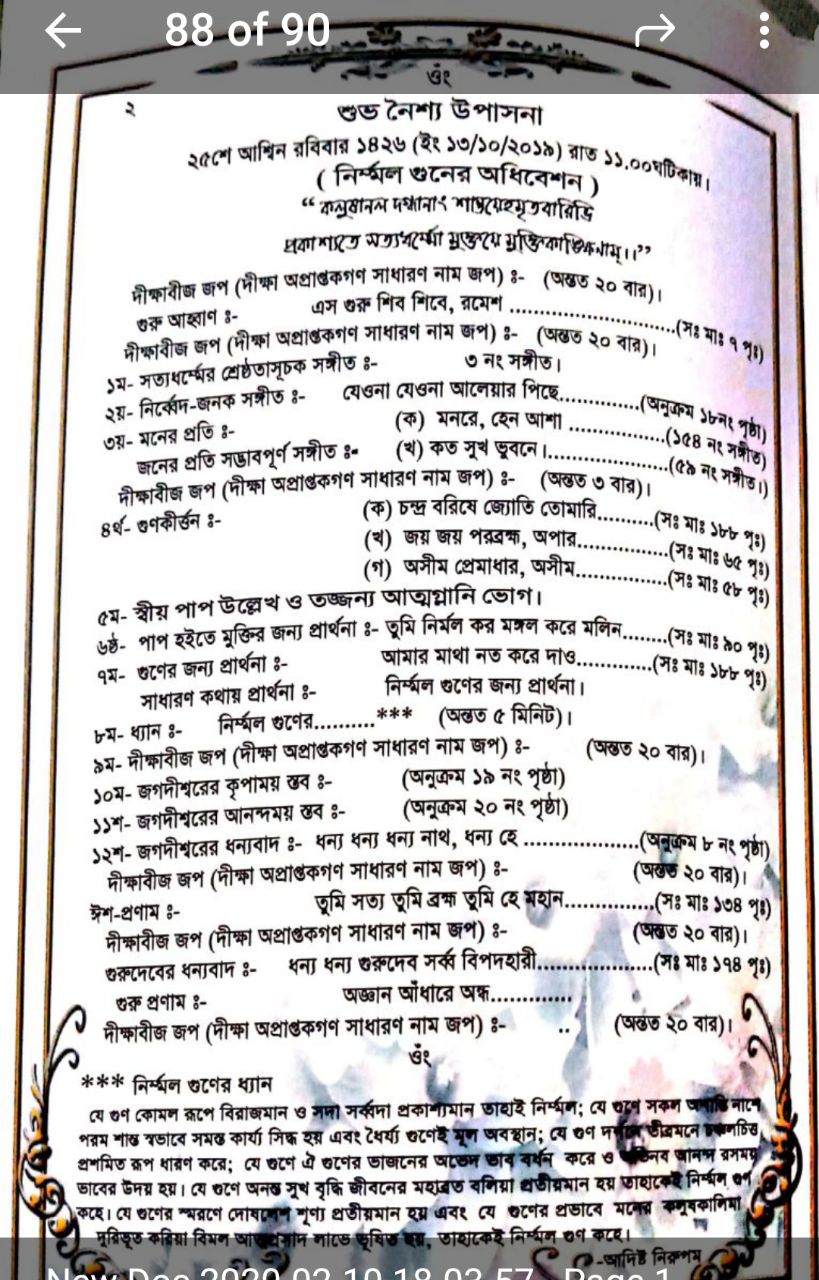 88 of 90
ওঁং
২
শুভ নৈশ্য উপাসনা
২৫শে আশ্বিন রবিবার ১৪২৬ (ইং ১৩/১০/২০১৯) রাত ১১.০০ঘটিকায়।
( নির্ম্মল গুনের অধিবেশন )
“ কলুষানল দগ্ধানাং
প্রকাশ্যতে সত্যধর্ম্মো মুক্তয়ে মুক্তিকাঙ্ক্ষিনাম্।।”
দীক্ষাবীজ জপ (দীক্ষা অপ্রাপ্তকগণ সাধারণ নাম জপ) ঃ- (অন্তত ২০ বার)।
গুরু আহ্বাণ ঃ- এস গুরু শিব শিবে, রমেশ ........................(সঃ মাঃ ৭ পৃঃ)
দীক্ষাবীজ জপ (দীক্ষা অপ্রাপ্তকগণ সাধারণ নাম জপ) ঃ- (অন্তত ২০ বার)।
১ম- সত্যধর্ম্মের শ্রেষ্ঠতাসূচক সঙ্গীত ঃ- ৩ নং সঙ্গীত।
২য়- নির্ব্বেদ-জনক সঙ্গীত ঃ- যেওনা যেওনা আলেয়ার পিছে............(অনুক্রম ১৮নং পৃষ্ঠা)
৩য়- মনের প্রতি ঃ- (ক) মনরে, হেন আশা ..............(১৫৪ নং সঙ্গীত)
জনের প্রতি সদ্ভাবপূর্ণ সঙ্গীত ঃ- (খ) কত সুখ ভুবনে।..................(৫৯ নং সঙ্গীত।)
দীক্ষাবীজ জপ (দীক্ষা অপ্রাপ্তকগণ সাধারণ নাম জপ) ঃ- (অন্তত ৩ বার)।
৪র্থ- গুণকীর্ত্তন ঃ- (ক) চন্দ্র বরিষে জ্যোতি তোমারি.........(সঃ মাঃ ১৮৮ পৃঃ)
(খ) জয় জয় পরব্রহ্ম, অপার..............(সঃ মাঃ ৬৫ পৃঃ)
(গ) অসীম প্রেমাধার, অসীম..............(সঃ মাঃ ৫৮ পৃঃ)
৫ম- স্বীয় পাপ উল্লেখ ও তজ্জন্য আত্মগ্লানি ভোগ।
৬ষ্ঠ- পাপ হইতে মুক্তির জন্য প্রার্থনা ঃ- তুমি নির্মল কর মঙ্গল করে মলিন.......(সঃ মাঃ ৯০ পৃঃ)
৭ম- গুণের জন্য প্রার্থনা ঃ- আমার মাথা নত করে দাও............(সঃ মাঃ ১৮৮ পৃঃ)
সাধারণ কথায় প্রার্থনা ঃ- নির্ম্মল গুণের জন্য প্রার্থনা।
৮ম- ধ্যান ঃ- নির্ম্মল গুণের..........*** (অন্তত ৫ মিনিট)।
৯ম- দীক্ষাবীজ জপ (দীক্ষা অপ্রাপ্তকগণ সাধারণ নাম জপ) ঃ- (অন্তত ২০ বার)।
১০ম- জগদীশ্বরের কৃপাময় স্তব ঃ- (অনুক্রম ১৯ নং পৃষ্ঠা)
১১শ- জগদীশ্বরের আনন্দময় স্তব ঃ- (অনুক্রম ২০ নং পৃষ্ঠা)
১২শ- জগদীশ্বরের ধন্যবাদ ঃ- ধন্য ধন্য ধন্য নাথ, ধন্য হে ..................(অনুক্রম ৮ নং পৃষ্ঠা)
দীক্ষাবীজ জপ (দীক্ষা অপ্রাপ্তকগণ সাধারণ নাম জপ) ঃ- (অন্তত ২০ বার)।
ঈশ-প্রণাম ঃ- তুমি সত্য তুমি ব্রহ্ম তুমি হে মহান..............(সঃ মাঃ ১৩৪ পৃঃ)
দীক্ষাবীজ জপ (দীক্ষা অপ্রাপ্তকগণ সাধারণ নাম জপ) ঃ- (অন্তত ২০ বার)।
গুরুদেবের ধন্যবাদ ঃ- ধন্য ধন্য গুরুদেব সর্ব্ব বিপদহারী..................(সঃ মাঃ ১৭৪ পৃঃ)
গুরু প্রণাম ঃ- অজ্ঞান আঁধারে অন্ধ.............
দীক্ষাবীজ জপ (দীক্ষা অপ্রাপ্তকগণ সাধারণ নাম জপ) ঃ- .. (অন্তত ২০ বার)।
ওঁং
*** নির্ম্মল গুণের ধ্যান
যে গুণ কোমল রূপে বিরাজমান ও সদা সর্ব্বদা প্রকাশ্যমান তাহাই নির্ম্মল; যে গুণে সকল নাশে
পরম শান্ত স্বভাবে সমস্ত কার্য্য সিদ্ধ হয় এবং ধৈর্য্য গুণেই মূল অবস্থান; যে গুণ
প্রশমিত রূপ ধারণ করে; যে গুণে ঐ গুণের ভাজনের অভেদ ভাব বর্ধন করে ও আনন্দ রসময়
ভাবের উদয় হয়। যে গুণে অনন্ত সুখ বৃদ্ধি জীবনের মহাব্রত বলিয়া প্রতীয়মান হয় তাহাকেই নির্ম্মল গুণ
কহে। যে গুণের স্মরণে শূণ্য প্রতীয়মান হয় এবং যে গুণের প্রভাবে মনের কলুষকালিমা
দূরিভূত করিয়া বিমল লাভে ভূষিত হয়, তাহাকেই নির্ম্মল গুণ কহে।
-আদিষ্ট নিরুপম